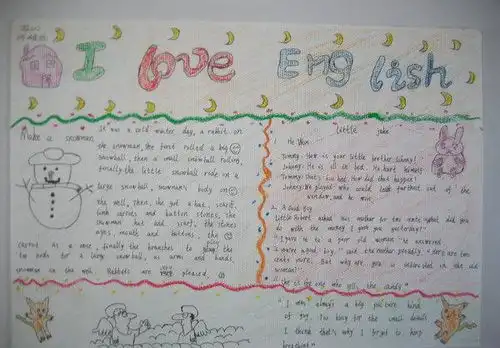 I love English
Make a snowman
It was a cold winter day, a rabbit in
the snowman, she first rolled a big
snowball, then a small snowball rolling,
finally the little snowball rode on a
large snowball, snowman's body on
the well, then, she got a hat, scarf,
carrots and button stones, the
snowman hat and scarf, the stones
eyes, mouth and buttons, the
carrot as a nose, finally the branches to
for a large snowball, as arms and hands,
snowman on the well. Rabbits are very pleased,
little joke
1. He Won
Tommy: How is your little brother, Johnny?
Johnny: He is ill in bed. He hurt himself.
Tommy: That's too bad. How did that happen?
Johnny: We played who could lean furthest out of the
window, and he won.
2. A Good Boy
Little Robert asked his mother for two cents. "What did you
do with the money I gave you yesterday?"
"I gave it to a poor old woman," he answered.
"You're a good boy," said the mother proudly. "Here are two
cents more. But why are you so interested in the old
woman?"
"She is the one who sells the candy."
"I am always a big picture kind
of guy. I'm too busy for the small details
I think that's why I forgot to have
breakfast."